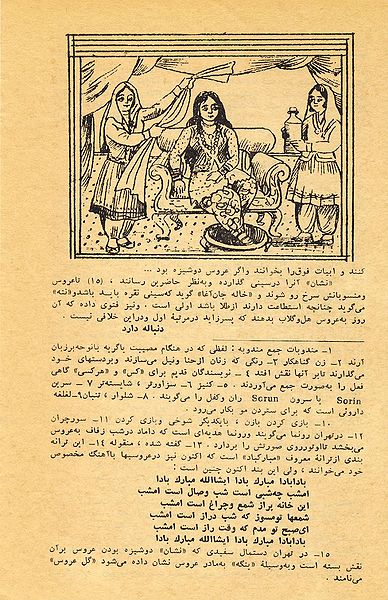 کنند و ابیات فوق‌را بخوانند واگر عروس دوشیزه بود ...
«نشان» آنرا درسینی گذارده وبه‌نظر حاضرین رسانند ، (۱۵) تاعروس
ومنسوبانش سرخ رو شوند و «خاله جان‌آغا» گوید که‌سینی نقره باید باشدو«ننه»
می‌گوید چنانچه استطاعت دارند ازطلا باشد اولی است . ونیز فتوی داده که آن
روز به‌عروس هل‌وگلاب بدهند که پسرزاید درمرتبهٔ اول ودراین خلافی نیست .
دنباله دارد
۱ـ مندوبات جمع مندوبه : لفظی که در هنگام مصیبت باگریه بانوحه‌برزبان
آرند ۲ـ زن گناهکار ۳ـ رنگی که زنان ازحنا ونیل می‌سازند وبردستهای خود
می‌گذارند تابر آنها نقش افتد ۴ـ نویسندگان قدیم برای «کس» و «هرکس» گاهی
فعل را به‌صورت جمع می‌آوردند . ۵ـ کنیز ۶ـ سزاوارتر ، شایسته‌تر ۷ـ سرین
Sorin یا سرون Sorun ران وکفل را می‌گویند . ۸ـ شلوار ، تنبان ۹ـ لغلغه
داروئی است که برای ستردن مو بکار می‌رود .
۱۰ـ بازی کردن بازن ، بایکدیگر شوخی وبازی کردن ۱۱ـ سورچران
۱۲ـ درتهران رونما می‌گویند ورونما هدیه‌ای است که داماد درشب زفاف به‌عروس
می‌بخشد تااوتوروی صورتش را بردارد . ۱۳ـ گفته شده ، منقوله ۱۴ـ این ترانه
بندی ازترانهٔ معروف «مبارکباد» است که اکنون نیز درعروسیها باآهنگ مخصوص
خود می‌خوانند ، ولی این بند اکنون چنین است :
بادابادا مبارك بادا ایشاالله مبارك بادا
امشب چه‌شبی است شب وصال است امشب
این خانه پراز شمع وچراغ است امشب
شمعها تومسوز که شب دراز است امشب
ای‌صبح تو مدم که وقت راز است امشب
بادابادا مبارك بادا ایشاالله مبارك بادا
۱۵ـ در تهران دستمال سفیدی که «نشان» دوشیزه بودن عروس برآن
نقش بسته است وبه‌وسیلهٔ «ینگه» به‌مادر عروس نشان داده می‌شود «گل عروس»
می‌نامند .